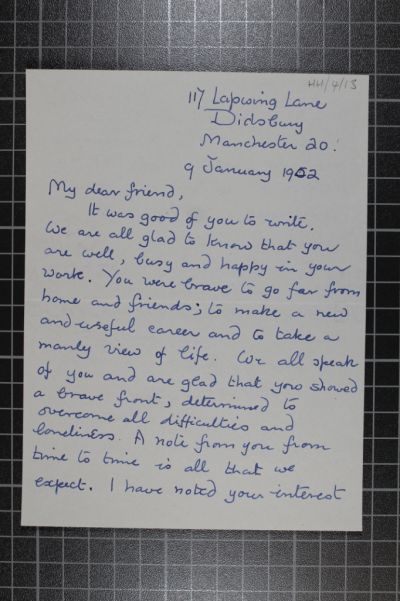 HH/4/13
117 Lapwing Lane
Didsbury
Manchester 20.
9 January 1952
My dear friend,
It was good of you to write.
We are all glad to know that you
are well, busy and happy in your
work. You were brave to go far from
home and friends; to make a new
and useful career and to take a
manly view of life. We all speak
of you and are glad that you showed
a brave front, determined to
overcome all difficulties and
loneliness. A note from you from
time to time is all that we
expect. I have noted your interest